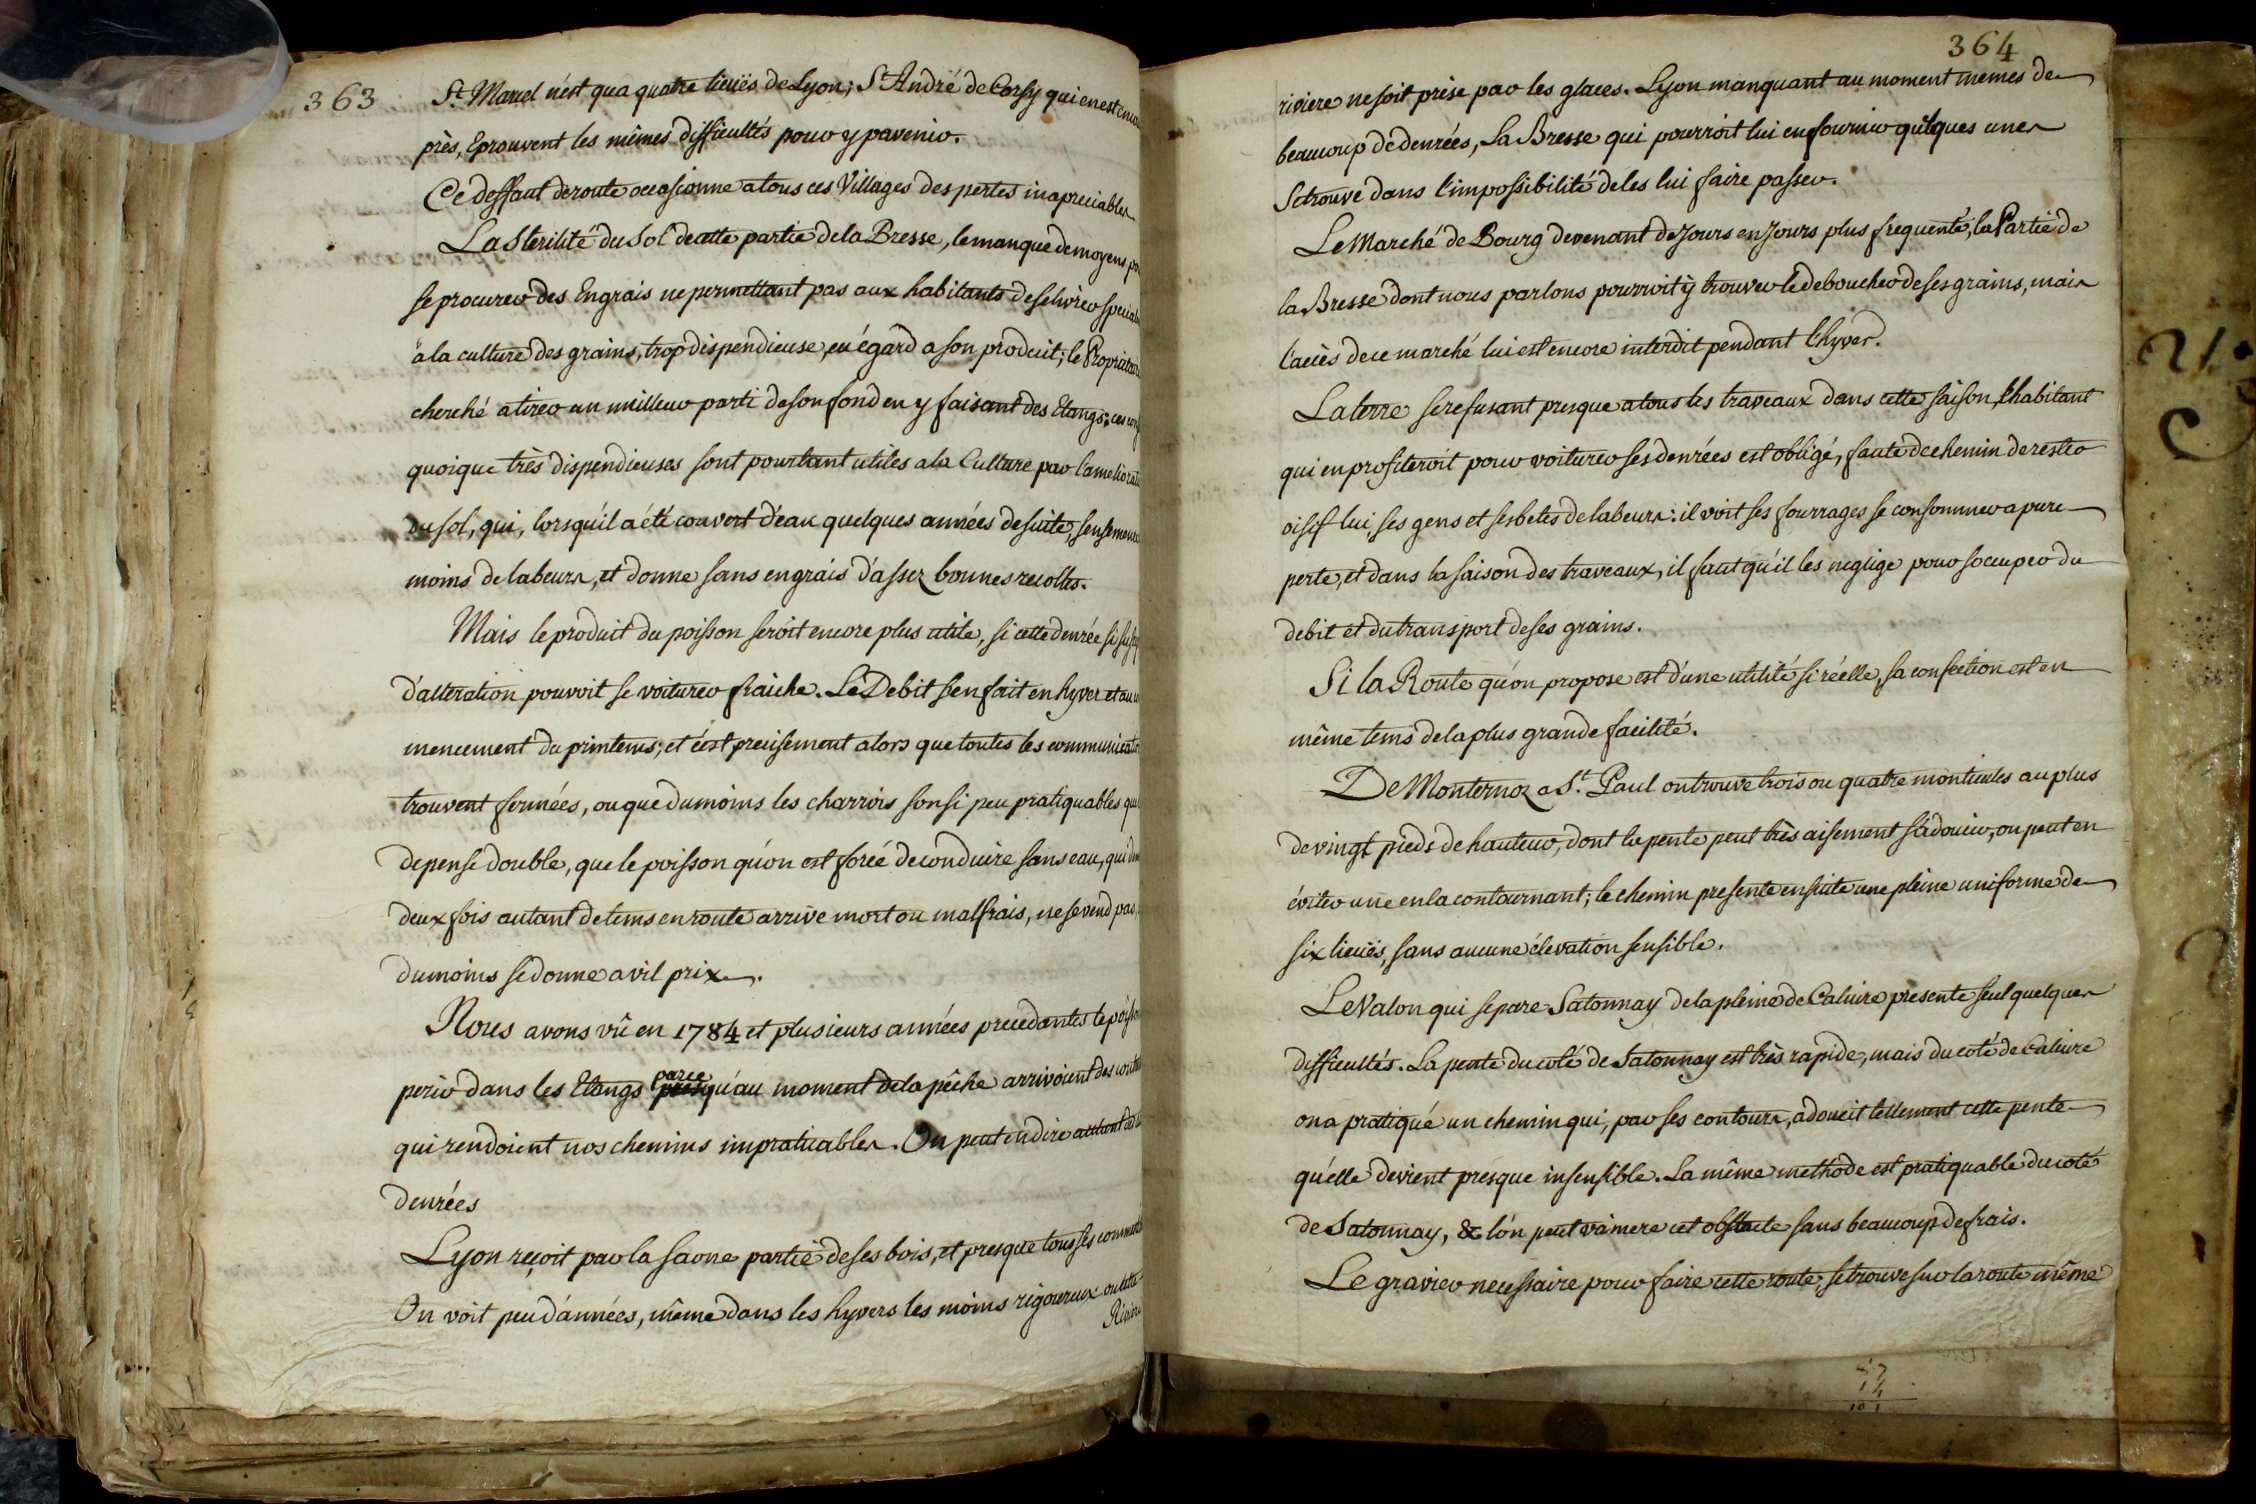 363
St. Marcel n'ést qua quatre lieuës de Lyon; St André de Corsy qui en est
près, Eprouvent les mêmes difficultés pour y parvenir.
Ce deffaut de route occasionne a tous ces Villages des pertes inapreciables
La Sterilité du Sol de cette partie de la Bresse, le manque de moyens
se procurer des Engrais ne permettant pas aux habitants de se livrer
à la culture des grains, trop dispendieuse, eu égard a son produit; le Propriétaire
cherché a tirer un meilleur parti de son fond en y faisant des Etangs: ces
quoique très dispendieuses sont pourtant utiles a la Culture par l'ameliorat
du sol, qui, lorsqu'il a été couvert d'eau quelques années de suite, s'ensemence
moins de labeurs, et donne sans engrais d'assez bonnes recoltes.
Mais le produit du poisson seroit encore plus utile, si cette denrée si
d'alteration pouvoit se voiturer fraiche. Le Debit s'en fait en hyver et au
mencement du printems; et c'est precisement alors que toutes les communicatio
trouvent fermées, ou que du moins les charrois sonsi peu pratiquables
depense double, que le poisson qu'on est forcé de conduire sans eau, qui
deux fois autant de tems en route arrive mort ou malfrais, ne se vend pas
du moins se donne a vil prix.
Nous avons vû en 1784 et plusieurs années precedantes le poisson
perir dans les Etangs parce qu'au moment de la pêche arrivoient des
qui rendoient nos chemins impraticables. On peut en dire autant des
denrées
Lyon reçoit par la Saone partie de ses bois, et presque tous ses
On voit peu d'années, même dans les hyvers les moins rigoureux ou cette
Riviere
364
riviere ne soit prise par les glaces. Lyon manquant au moment mêmes de
beaucoup de denrées, La Bresse qui pourroit lui en fournir quelques unes
Se trouve dans l'impossibilité de les lui faire passer.
Le Marché de Bourg devenant de Jours en Jours plus frequenté, la Partie de
la Bresse dont nous parlons pourroit y trouver le deboucher de ses grains, mais
l'accès de ce marché lui est encore interdit pendant l'hyver.
La terre se refusant presque a tous les traveaux dans cette saison, l'habitant
qui en profiteroit pour voiturer ses denrées est obligé, faute de chemin de rester
oisif lui, ses gens et ses betes de labeurs: il voit ses fourrages se consommer a pure
perte, et dans la saison des traveaux, il faut qu'il les neglige pour s'occuper du
debit et du transport de ses grains.
Si la Route qu'on propose est d'une utilité si réelle, sa confection est en
même tems de la plus grande facilité.
De Monternoz a St. Paul on trouve trois ou quatre monticules au plus
de vingt pieds de hauteur, dont la pente peut très aisement s'adoucir, on peut en
éviter une en la contournant; le chemin presente ensuite une pleine uniforme de
six lieuës, sans aucune élevation sensible.
Le Valon qui separe Satonnay de la pleine de Caluire presente seul quelques
difficultés. La pente du coté de Satonnay est très rapide, mais du coté de Caluire
on a pratiqué un chemin qui, par ses contours, adoucit tellement cette pente
qu'elle devient presque insensible. La même methode est pratiquable du coté
de Satonnay, & l'on peut vaincre cet obstacle sans beaucoup de frais.
Le gravier necessaire pour faire cette route, se trouve sur la route même